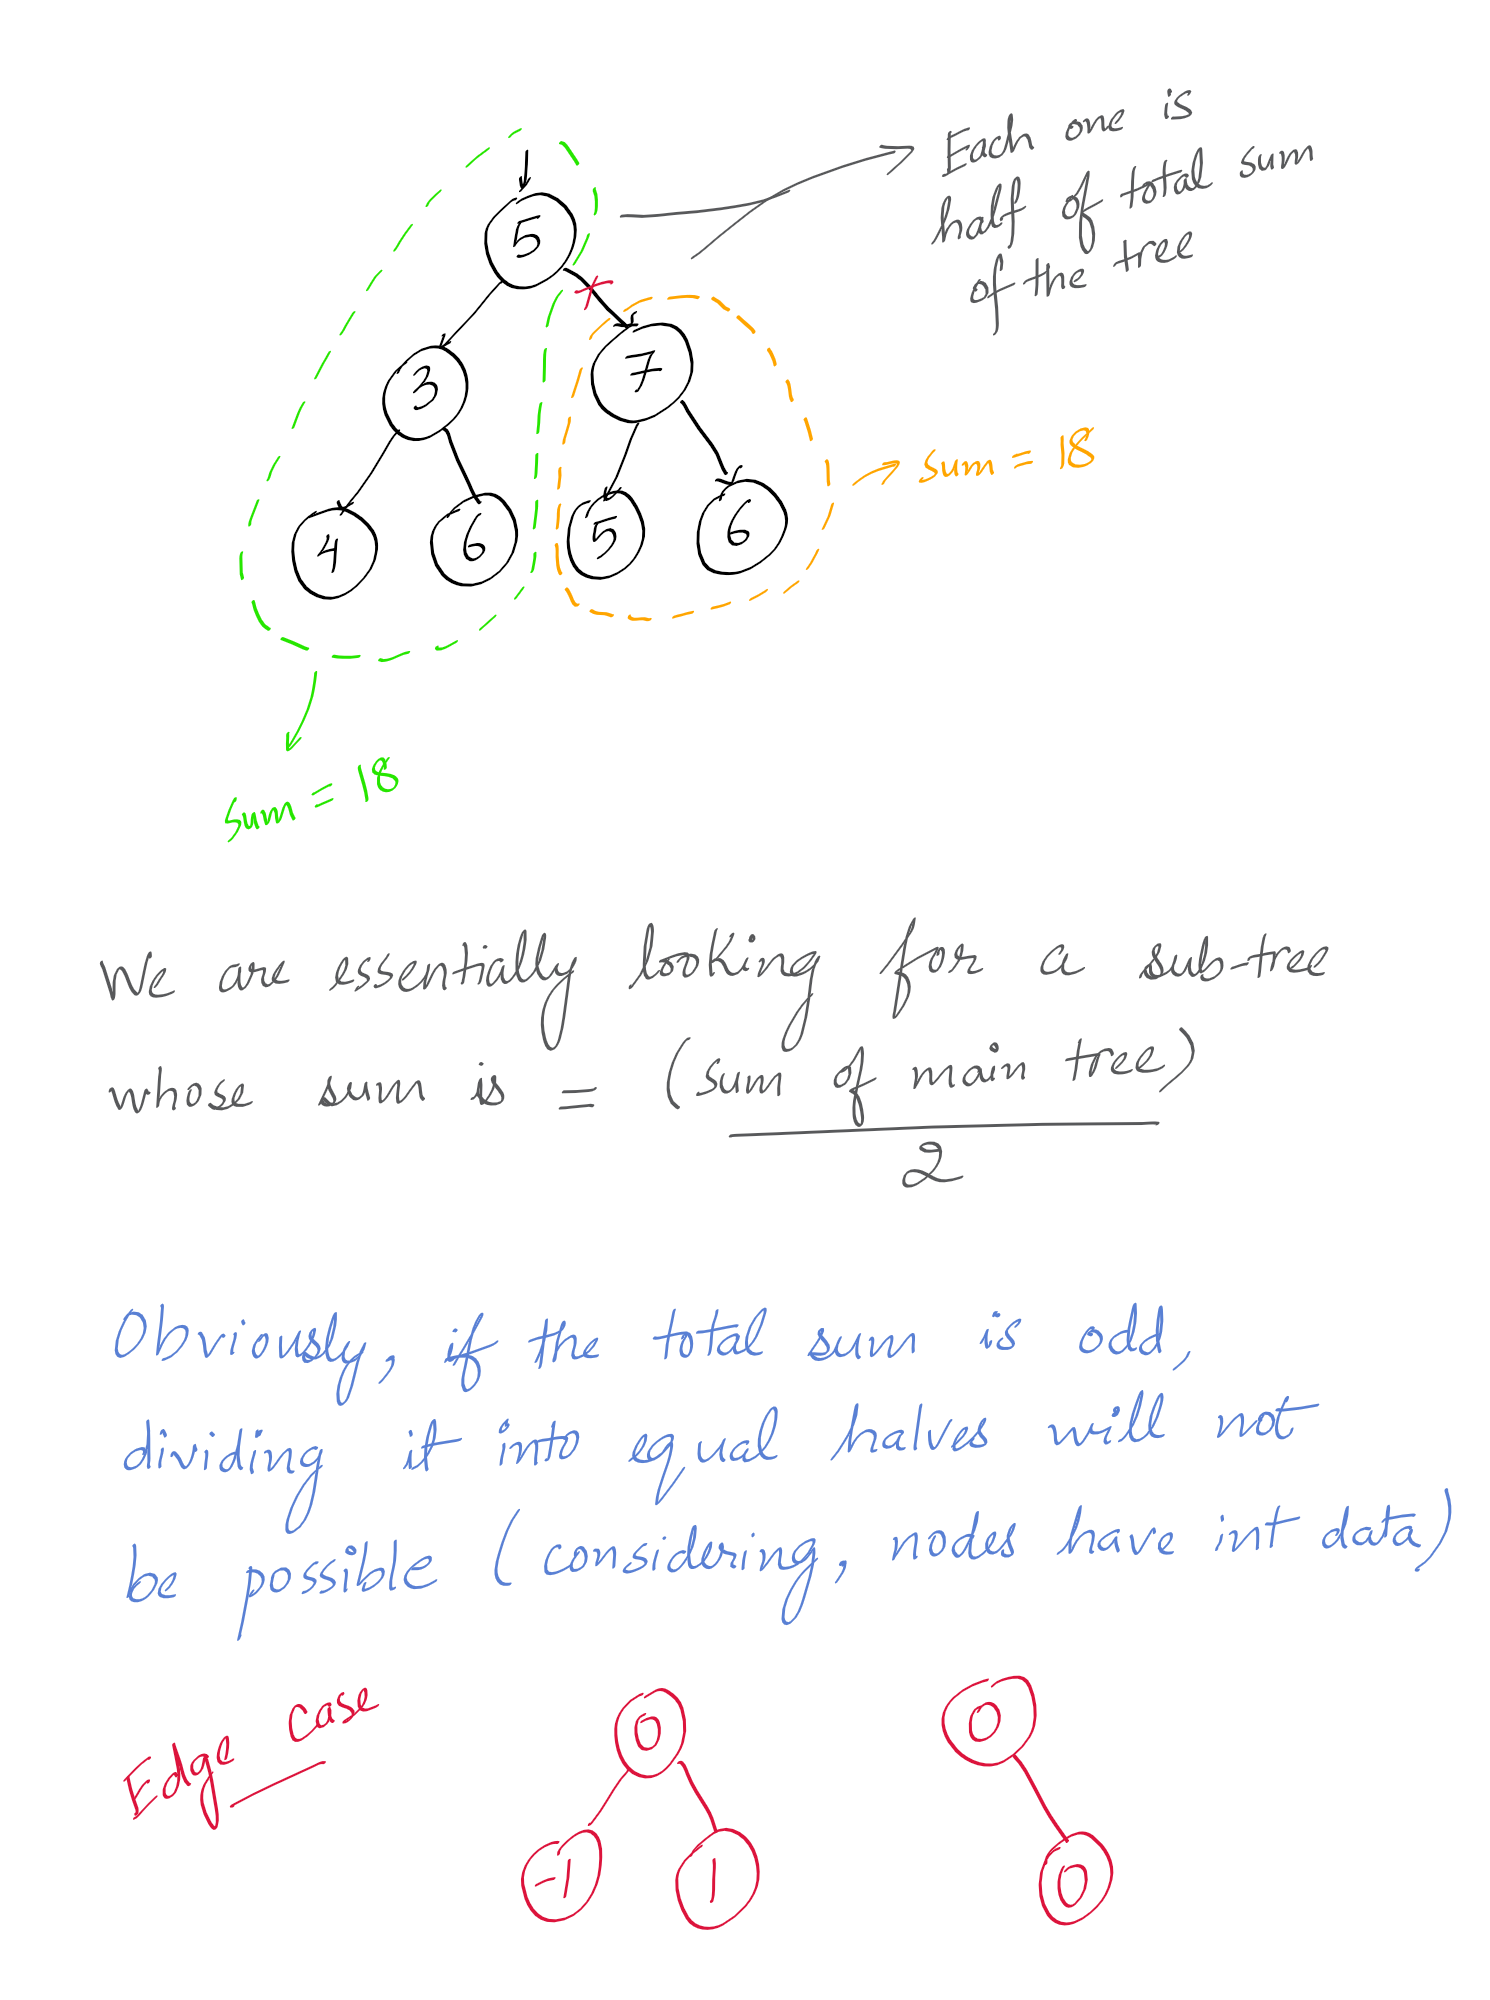 Each one is
half of total sum
of the tree
5
3
7
4
6
5
6
sum = 18
sum = 18
We are essentially looking for a sub-tree
whose sum is = (sum of main tree)
2
Obviously, if the total sum is odd,
dividing it into equal halves will not
be possible (considering, nodes have int data)
Edge case
0
0
-1
1
0